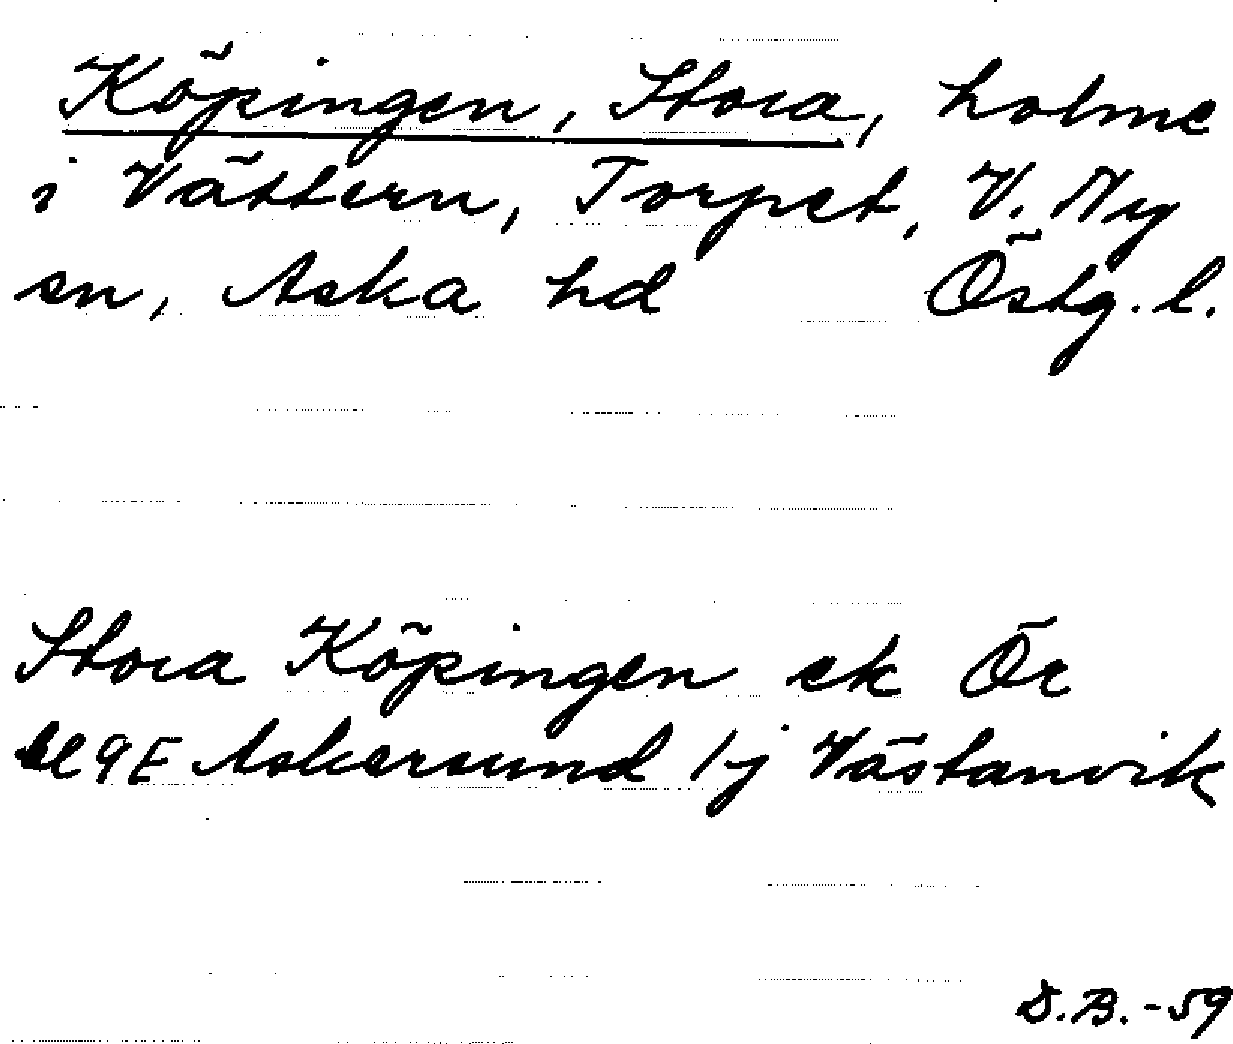 Köpingen, Stora, holme
i Vättern, Torpet, V. Ny
sn, Aska hd Östg. l.
Stora Köpingen ek Ör
bl 9E Askersund 1j Västanvik
D.B. -59